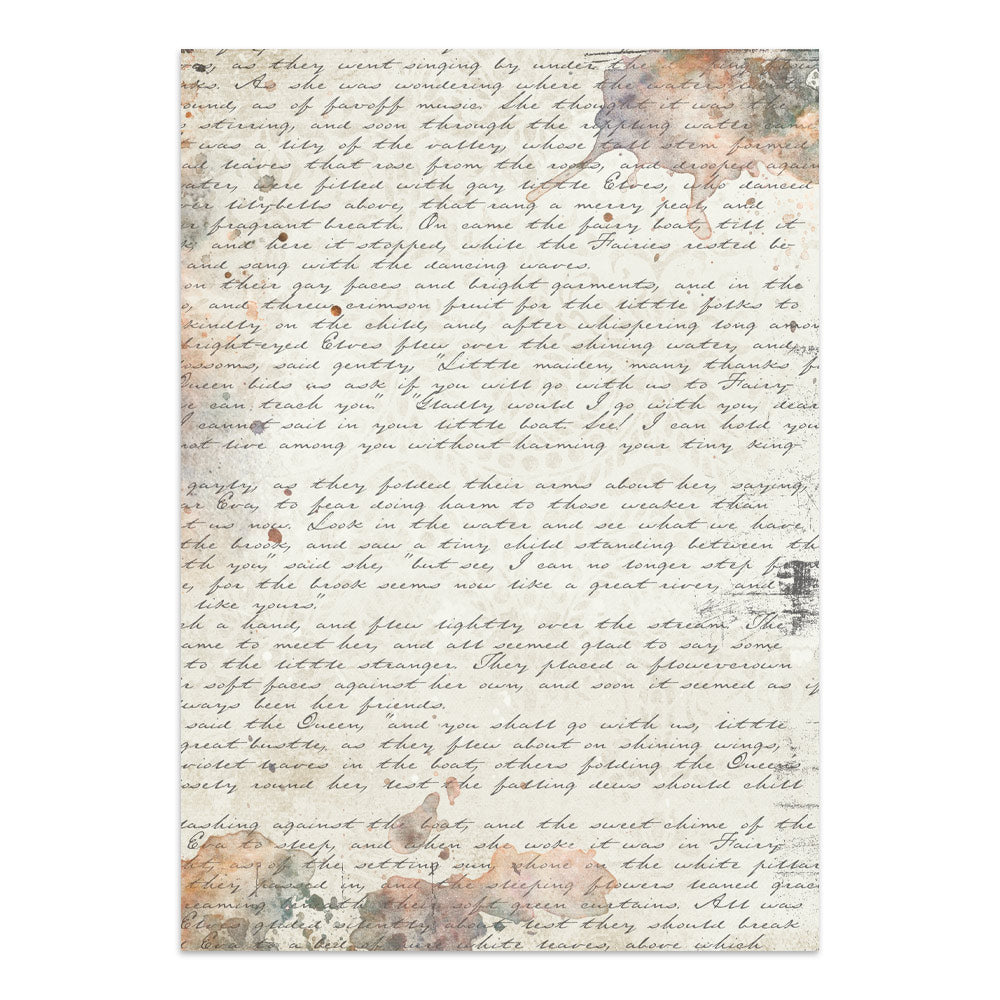 as they went singing by under the
As she was wondering where the waters
ound, as of faroff music. She thought it was the
stirring, and soon through the rippling water came
t was a lily of the valley, whose tall stem formed
ad leaves that rose from the roots, and drooped again
ater, were filled with gay little Elves, who danced
er lilybells above, that rang a merry peal, and
r fragrant breath. On came the fairy boat, till it
and here it stopped, while the Fairies rested be-
and sang with the dancing waves.
on their gay faces and bright garments, and in the
o, and threw crimson fruit for the little folks to
kindly on the child, and, after whispering long amon
brighteyed Elves flew over the shining water, and,
ossoms, said gently, "Little maiden, many thanks f
Queen bids us ask if you will go with us to Fairy-
e can teach you." "Gladly would I go with you, dear
I cannot sail in your little boat. See! I can hold you
not live among you without harming your tiny king-
gayly, as they folded their arms about her, saying,
ar Eva, to fear doing harm to those weaker than
t us now. Look in the water and see what we have
the brook, and saw a tiny child standing between th
th you," said she, "but see, I can no longer step f
e, for the brook seems now like a great river, and
like yours."
ch a hand, and flew lightly over the stream. The
ame to meet her, and all seemed glad to say some
to the little stranger. They placed a flowercrown
r soft faces against her own, and soon it seemed as if
ways been her friends.
said the Queen, "and you shall go with us, little
great bustle, as they flew about on shining wings,
violet leaves in the boat, others folding the Queens
osely round her, lest the falling dews should chill
lashing against the boat, and the sweet chime of the
Eva to sleep, and when she woke it was in Fairy-
of the setting sun, shone on the white pillar
they passed in, and the sleeping flowers leaned grac
reaming beneath their soft green curtains. All was
Elves glided silently about, lest they should break
Eva to a bed of pure white leaves, above which